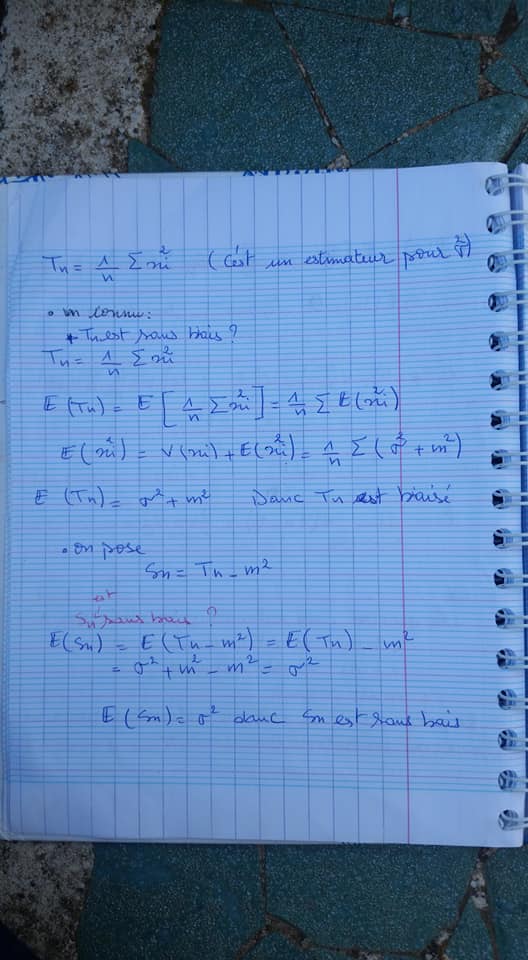 Tn = 1/n Σ xi² (C'est un estimateur pour σ²)
• m connu:
* Tn est sans biais ?
Tn = 1/n Σ xi²
E(Tn) = E[1/n Σ xi²] = 1/n Σ E(xi²)
E(xi²) = V(xi) + E(xi²) = 1/n Σ (σ² + m²)
E(Tn) = σ² + m² Donc Tn est biaisé
• on pose
Sn = Tn - m²
est
Sn sans biais ?
E(Sn) = E(Tn - m²) = E(Tn) - m²
= σ² + m² - m² = σ²
E(Sn) = σ² donc Sn est sans bais